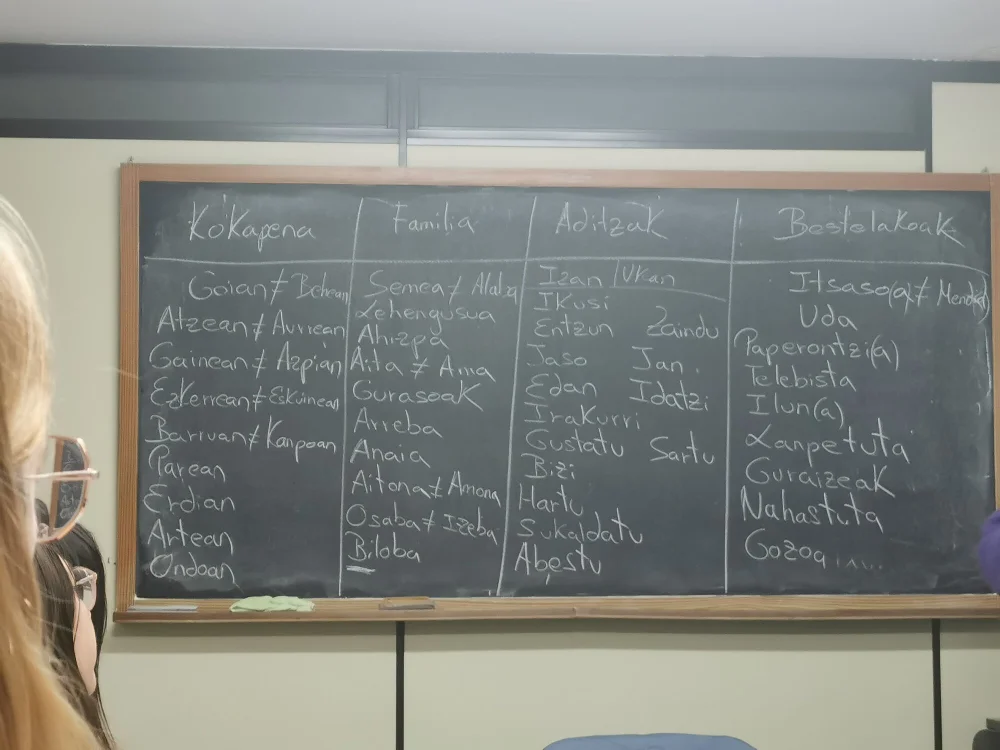 Kokapena
Goian ≠ Behean
Atzean ≠ Aurrean
Gainean ≠ Azpian
Ezkerrean ≠ Eskuinean
Barruan ≠ Kanpoan
Parean
Erdian
Artean
Ondoan
Familia
Semea ≠ Alaba
Lehengusua
Ahizpa
Aita ≠ Ama
Gurasoak
Arreba
Anaia
Aitona ≠ Amona
Osaba ≠ Izeba
Biloba
Aditzak
Izan / Ukan
Ikusi
Entzun Zaindu
Jaso Jan
Edan Idatzi
Irakurri
Gustatu Sartu
Bizi
Hartu
Sukaldatu
Abestu
Bestelakoak
Itsaso(a) ≠ Mendi(a)
Uda
Paperontzi(a)
Telebista
Ilun(a)
Lanpetuta
Guraizeak
Nahastuta
Gozoa.....